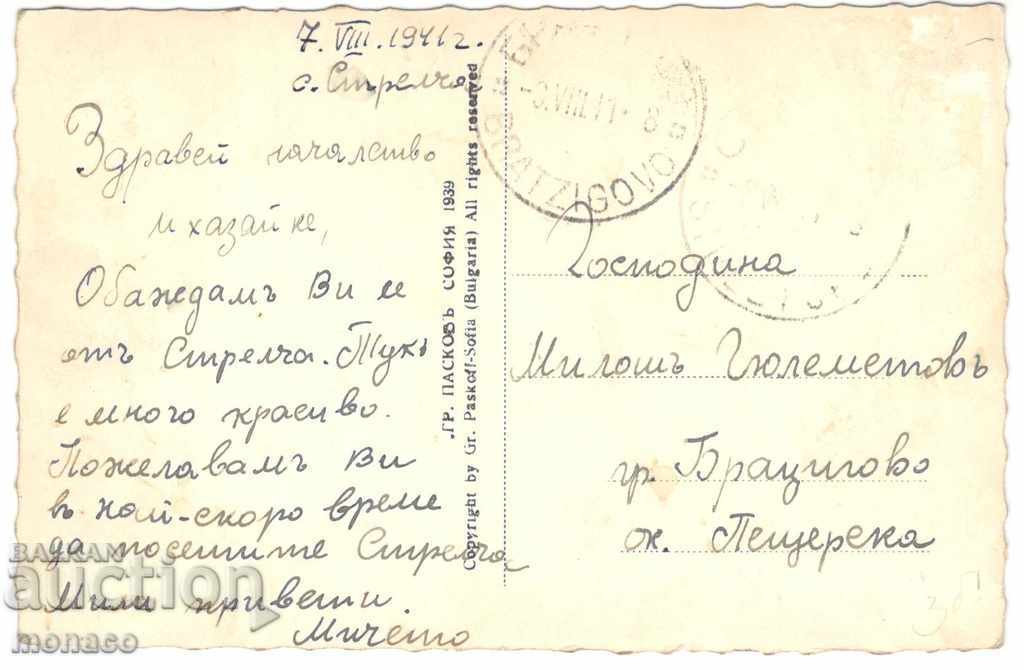 7.VIII.1941 г.
с. Стрелча
Здравей началство
и хазайке,
Обаждамъ Ви се
отъ Стрелча. Тукъ
е много красиво.
Пожелавамъ Ви
въ най-скоро време
да посетите Стрелча
Мили привети.
Мичето
ГР. ПАСКОВЪ СОФИЯ 1939
Copyright by Gr. Paskoff-Sofia (Bulgaria) All rights reserved
BRATZIGOVO
Господина
Милошъ Гюлеметовъ
гр. Брацигово
ок. Пещерска
BALKAN
auction
monaco